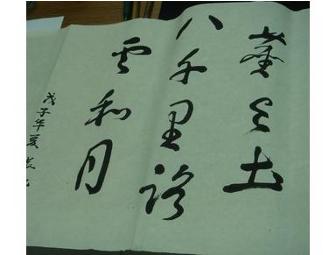 塵与土
八千里路
云和月
戊子年夏